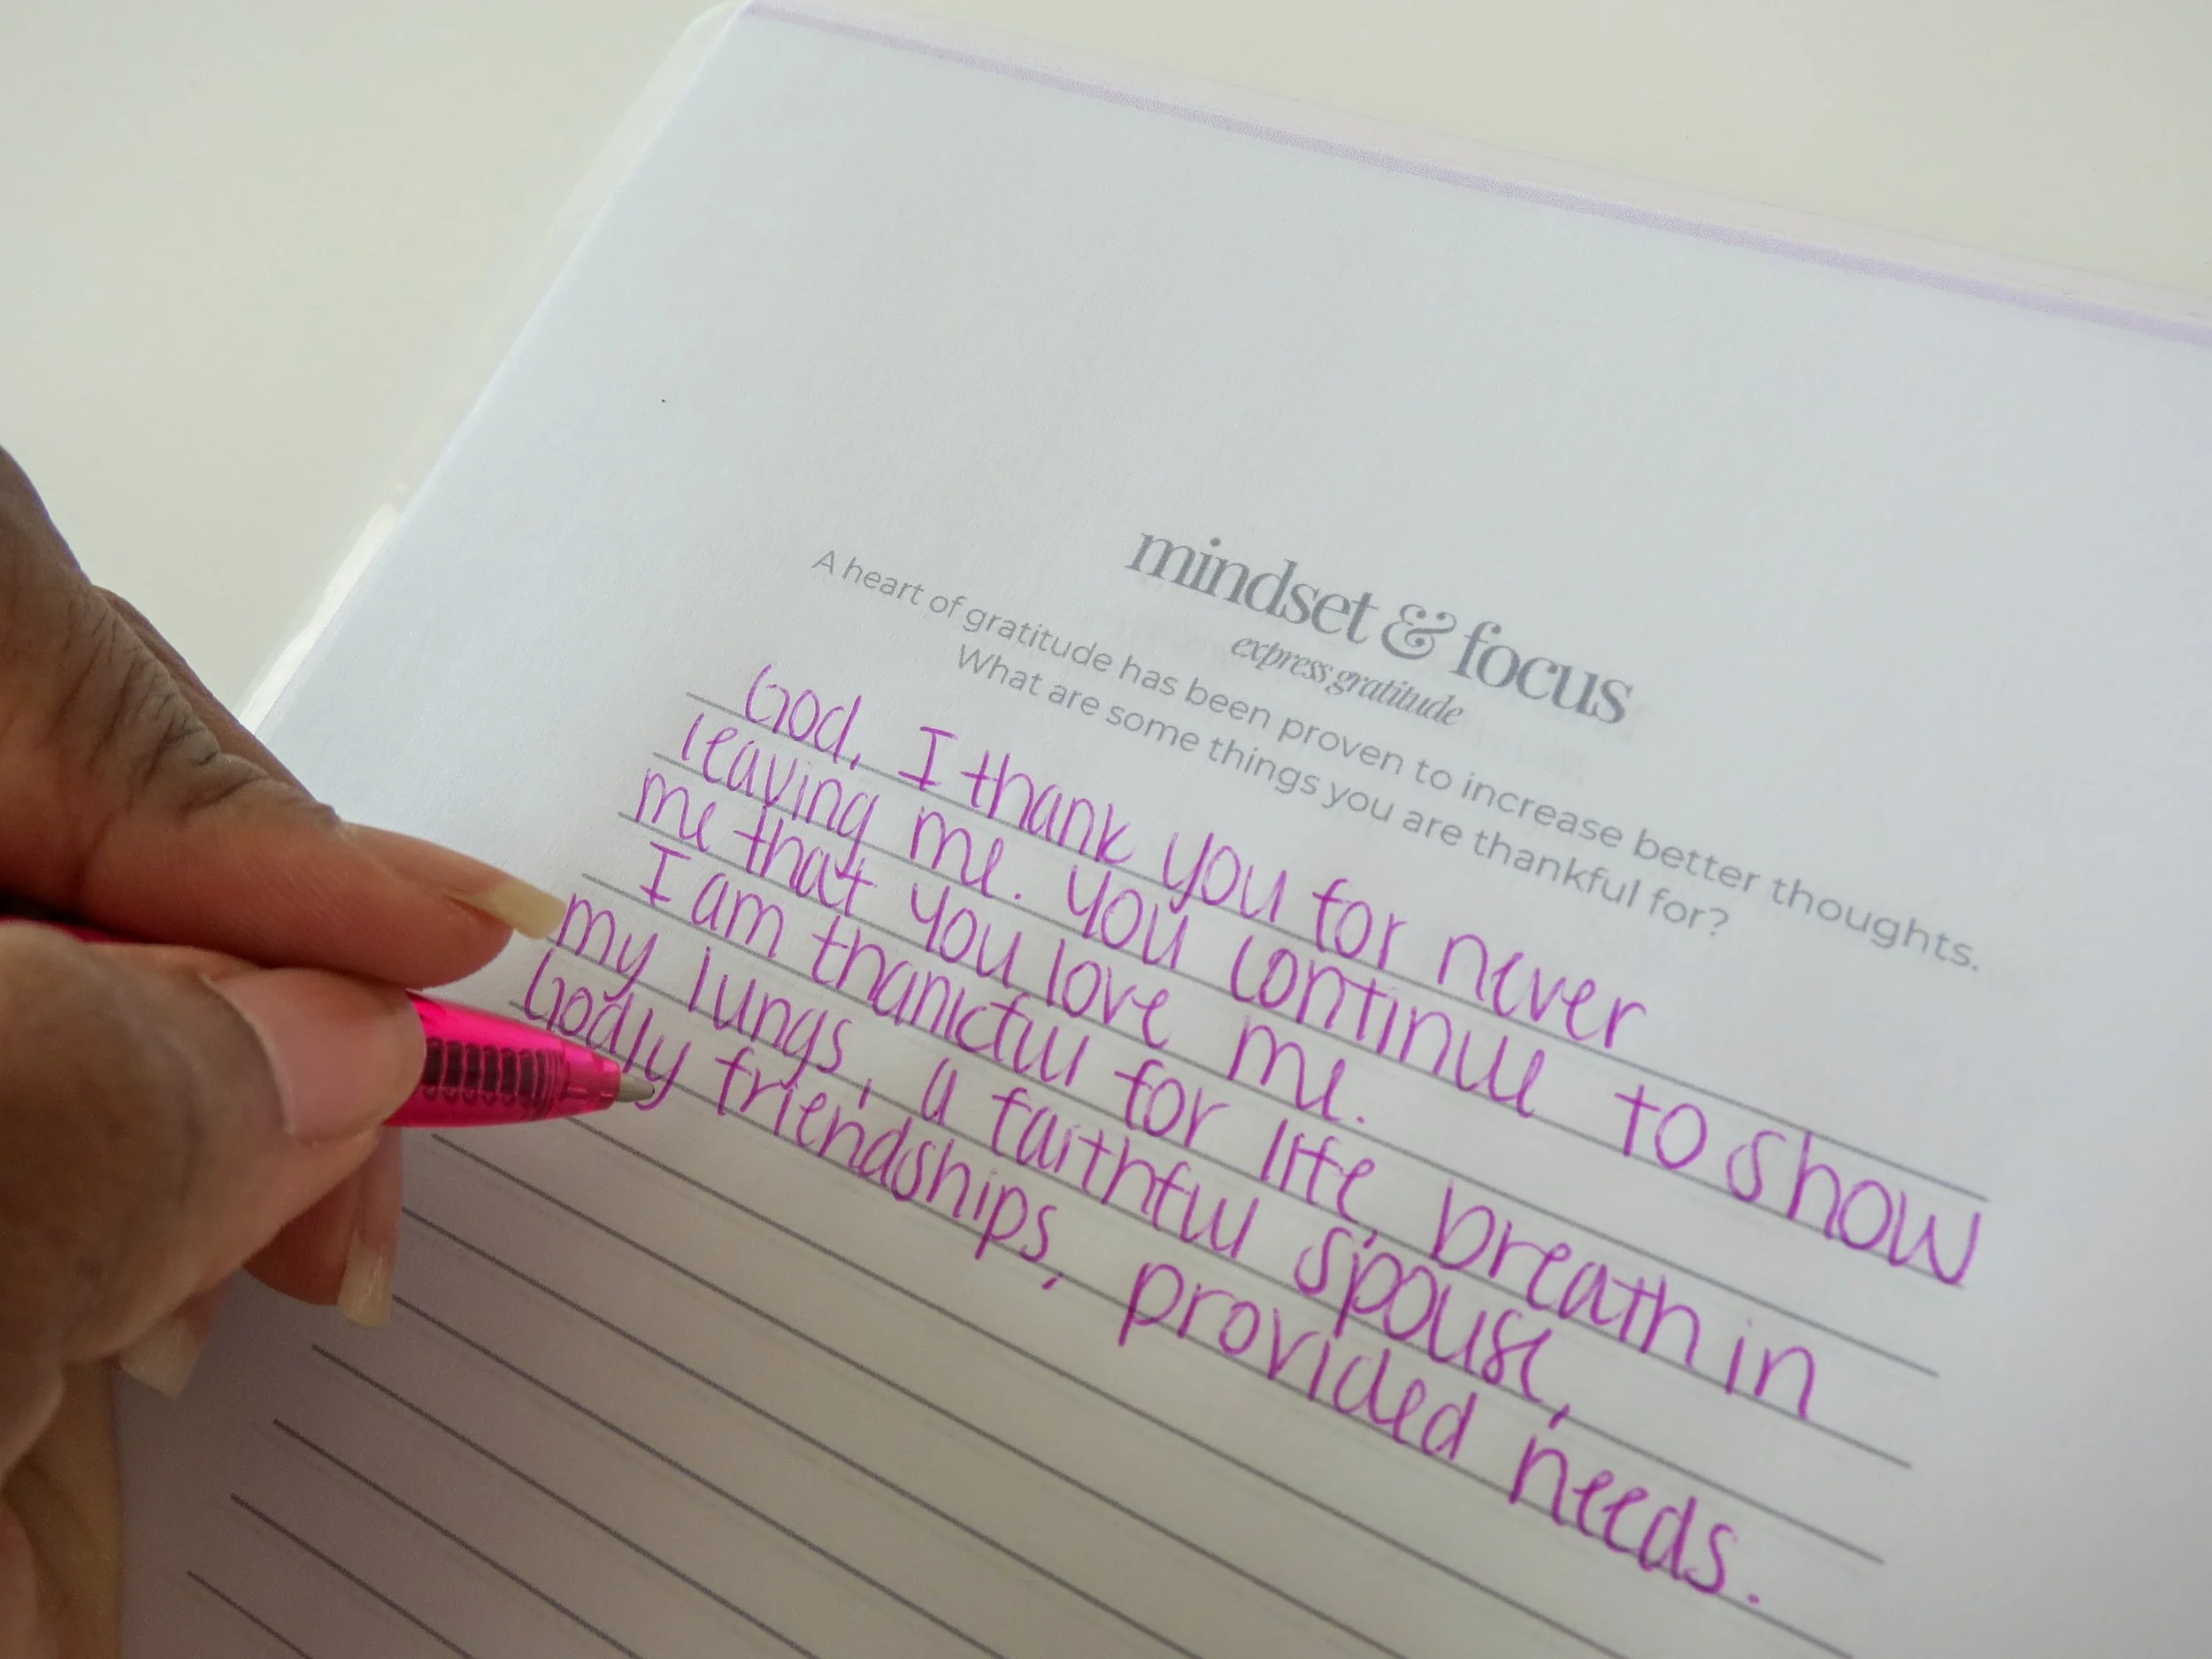 mindset & focus
express gratitude
A heart of gratitude has been proven to increase better thoughts.
What are some things you are thankful for?
God, I thank you for never
leaving me. You continue to show
me that you love me.
I am thankful for life, breath in
my lungs, a faithful spouse,
Godly friendships, provided needs.